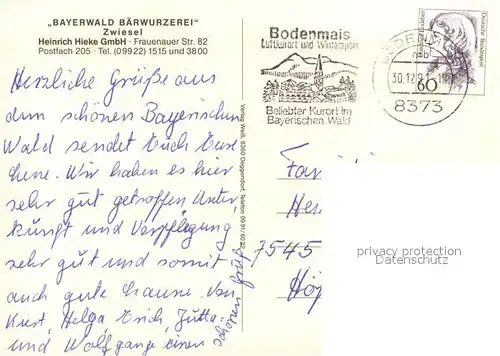 „BAYERWALD BÄRWURZEREI“
Zwiesel
Heinrich Hieke GmbH · Frauenauer Str. 82
Postfach 205 · Tel. (09922) 1515 und 3800
Herzliche Grüße aus
dem schönen Bayerischen
Wald sendet Euch
Wir haben es hier
sehr gut getroffen Unter,
kunft und Verpflegung
sehr gut und somit
auch gute Launse. Von
Kurt, Helga, Erich, Jutta
und Wolfgang einen
schönen Gruß
Verlag Weiß, 8360 Deggendorf, Telefon 09 91/
Bodenmais
Luftkurort und Wintersport
Beliebter Kurort im
Bayerischen Wald
30.12.
8373
Deutsche Bundespost
60
Fam
Her
7545
Höf
privacy protection
Datenschutz